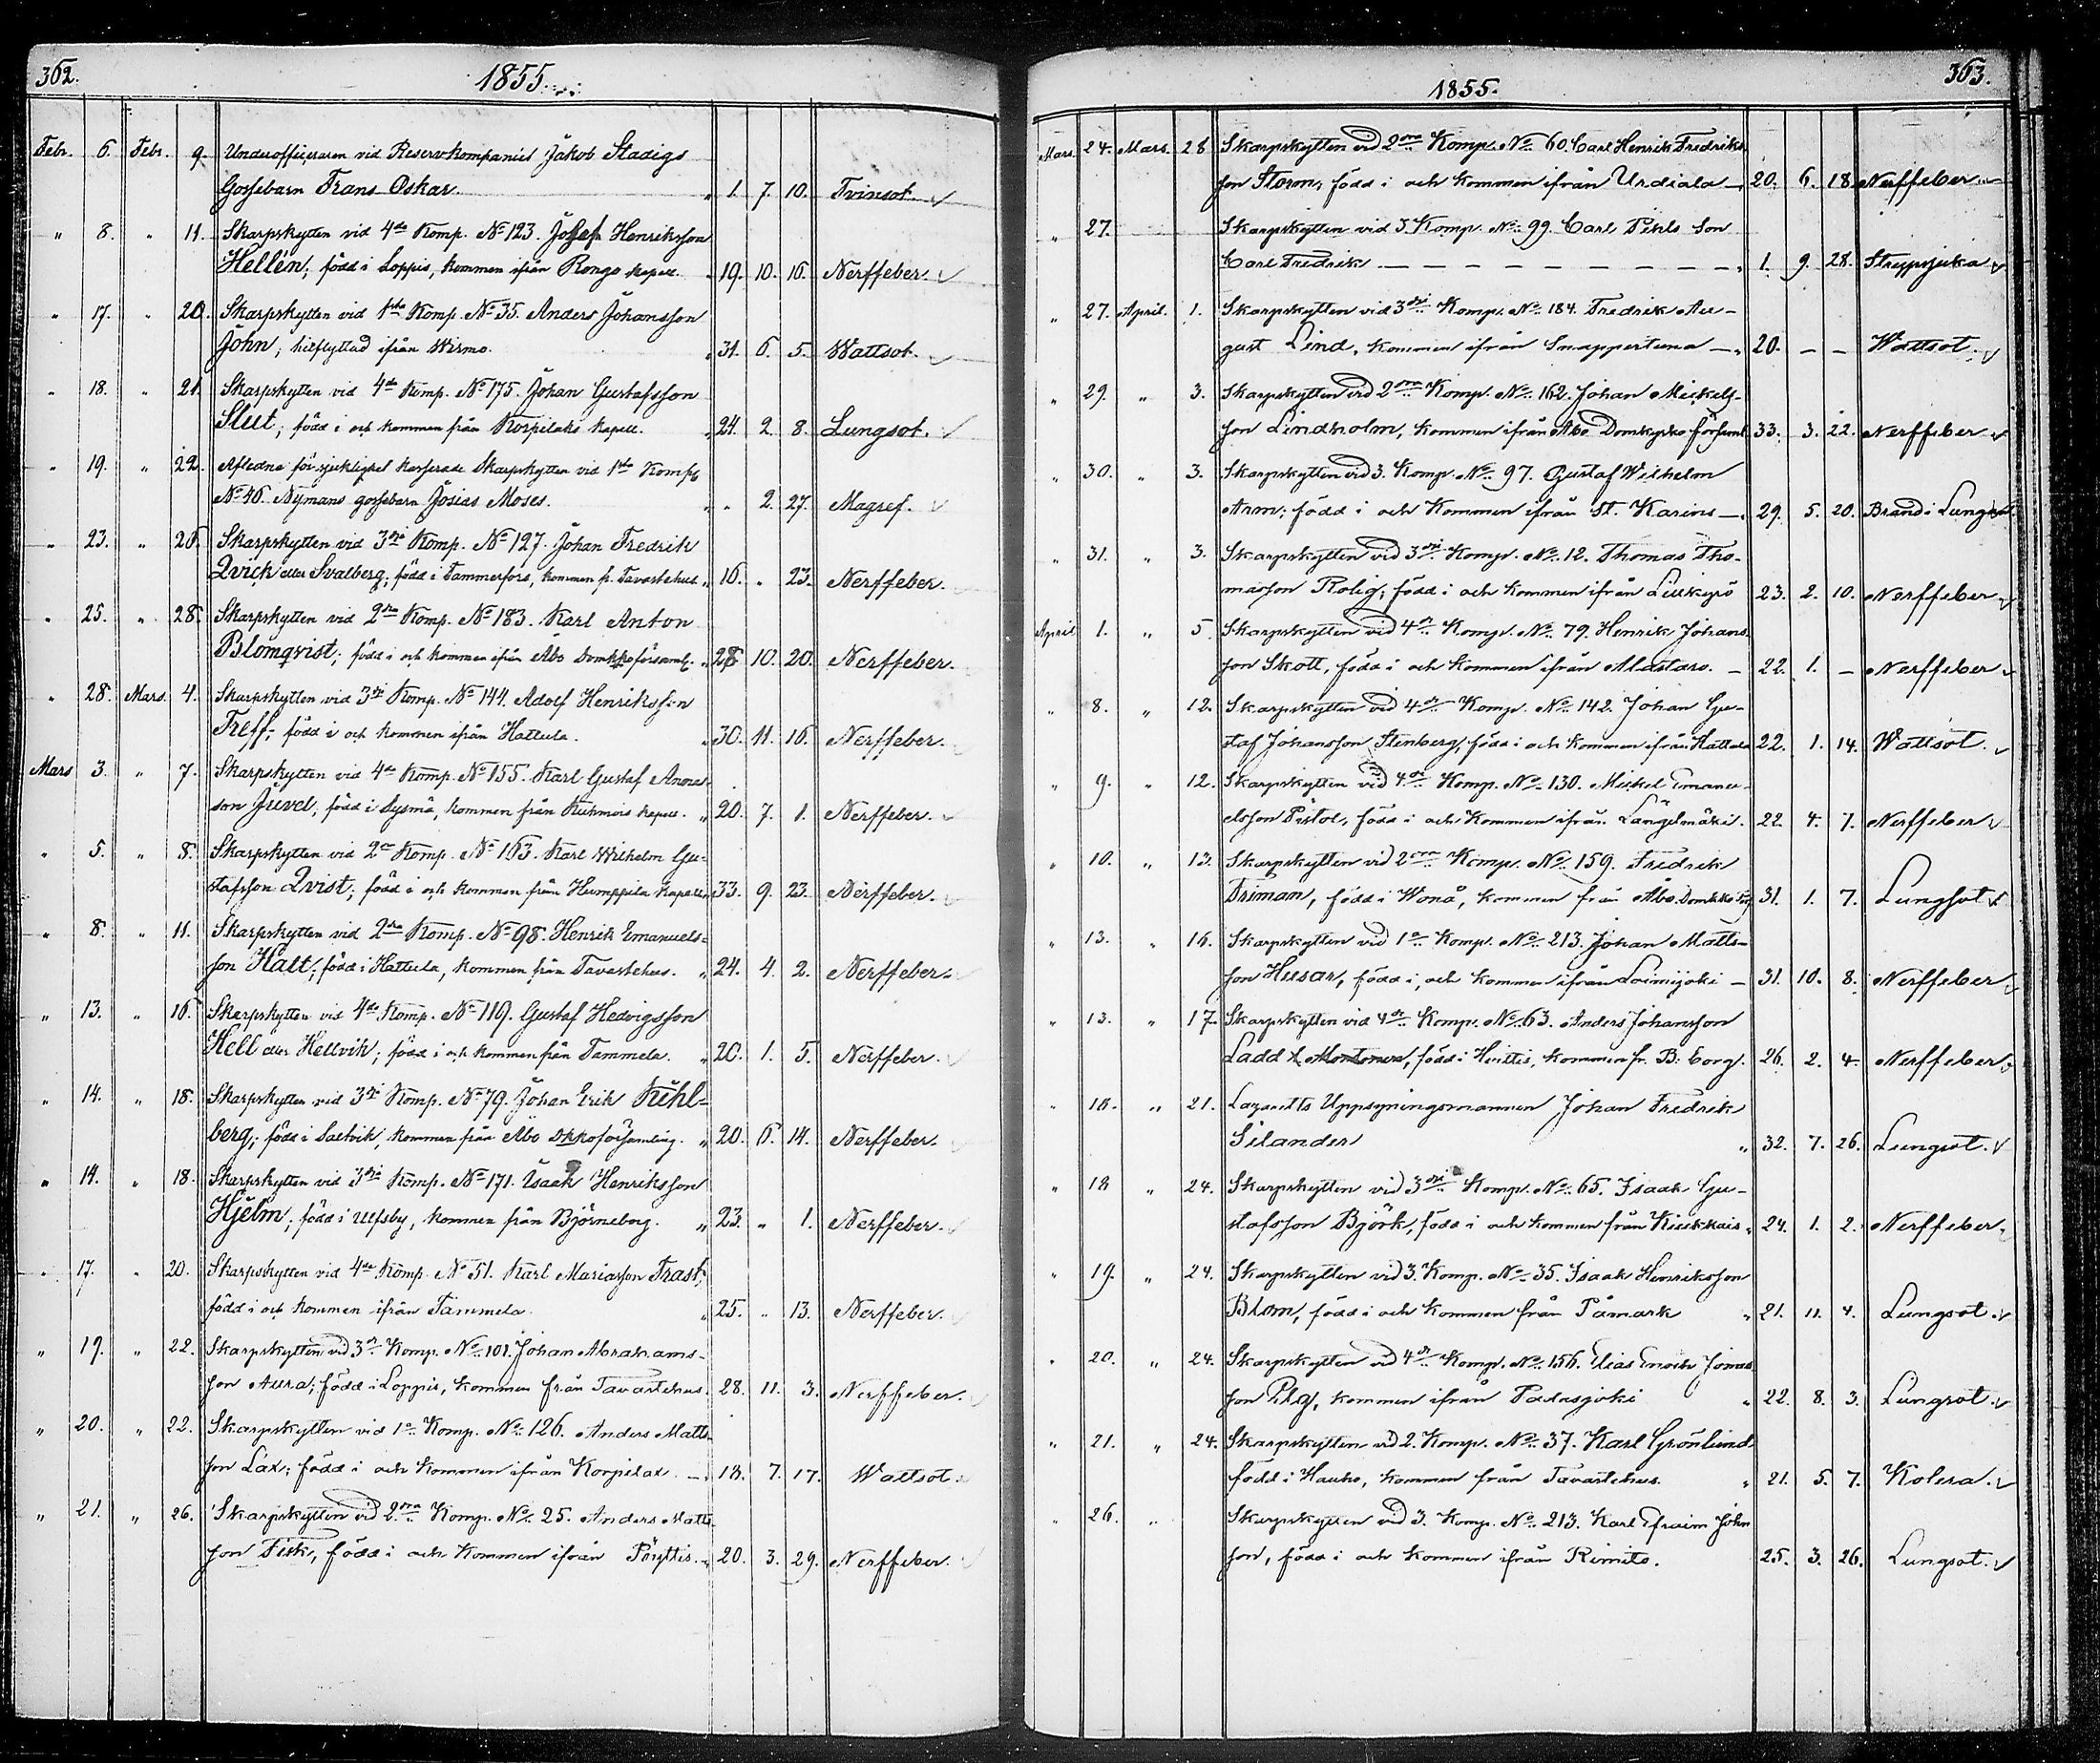 362.
1855.
Febr. 6. Febr. 9. Underofficeraren vid Reservkompaniet Jakob Stadigs
Gossebarn Frans Oskar. " 1. 7. 10. Tvinsot.
" 8. " 11. Skarpskytten vid 4de Komp. No 123. Josef Henriksson
Hellén; född i Loppis, kommen ifrån Rengo kapell. " 19. 10. 16. Nerffeber.
" 17. " 20. Skarpskytten vid 1sta Komp. No 35. Anders Johansson
John; hitflyttad ifrån Wirmo. " 31. 6. 5. Wattsot.
" 18. " 21. Skarpskytten vid 4de Komp. No 175. Johan Gustafsson
Slut; född i och kommen från Korpilaks kapell. " 24. 2. 8. Lungsot.
" 19. " 22. Afledne för sjuklighet kasserade Skarpskytten vid 1sta Komp
No 46. Nymans gossebarn Josias Moses. " " 2. 27. Magref.
" 23. " 26. Skarpskytten vid 3dje Komp. No 127. Johan Fredrik
Qvick eller Svalberg; född i Tammerfors, kommen fr. Tavastehus " 16. " 23. Nerffeber.
" 25. " 28. Skarpskytten vid 2dra Komp. No 183. Karl Anton
Blomqvist; född i och kommen ifrån Åbo Domkkoförsaml. " 28. 10. 20. Nerffeber.
" 28. Mars. 4. Skarpskytten vid 3dje Komp. No 144. Adolf Henriksson
Treff; född i och kommen ifrån Hattula. " 30. 11. 16. Nerffeber.
Mars 3. " 7. Skarpskytten vid 4de Komp. No 155. Karl Gustaf Anders-
son Juvel; född i Sysmä, kommen från Kuhmois kapell. " 20. 7. 1. Nerffeber.
" 5. " 8. Skarpskytten vid 2ra Komp. No 163. Karl Wilhelm Gu-
stafsson Qvist; född i och kommen från Humppila kapell. 33. 9. 23. Nerffeber.
" 8. " 11. Skarpskytten vid 2dra Komp. No 98. Henrik Emanuels-
son Halt; född i Hattula, kommen från Tavastehus. " 24. 4. 2. Nerffeber.
" 13. " 16. Skarpskytten vid 4de Komp. No 119. Gustaf Hedvigsson
Hell eller Hellvik; född i och kommen från Tammela. " 20. 1. 5. Nerffeber.
" 14. " 18. Skarpskytten vid 3dje Komp. No 79. Johan Erik Kuhl-
berg; född i Saltvik, kommen från Åbo Dkkoförsamling. " 20. 6. 14. Nerffeber.
" 14. " 18. Skarpskytten vid 3dje Komp. No 171. Isaak Henriksson
Hjelm; född i Ulfsby, kommen från Björneborg. " 23. " 1. Nerffeber.
" 17. " 20. Skarpskytten vid 4de Komp. No 51. Karl Mariasson Trast;
född i och kommen ifrån Tammela. " 25. " 13. Nerffeber.
" 19. " 22. Skarpskytten vid 3dje Komp. No 101. Johan Abrahams-
son Aura; född i Loppis, kommen från Tavastehus. 28. 11. 3. Nerffeber.
" 20. " 22. Skarpskytten vid 1a Komp. No 126. Anders Matts-
son Lax; född i och kommen ifrån Korpilax. - 18. 7. 17. Wattsot.
" 21. " 26. Skarpskytten vid 2dra Komp. No 25. Anders Matts-
son Fisk, född i och kommen ifrån Pöyttis. " 20. 3. 29. Nerffeber.
363.
1855.
Mars. 24. Mars. 28 Skarpskytten vid 2dra Komp. No 60. Carl Henrik Fredriks-
son Storm; född i och kommen ifrån Urdiala - 20. 6. 18. Nerffeber.
" 27. Skarpskytten vid 3. Komp. No 99. Carl Pihls Son
Carl Fredrik - - - - - - - - - " 1. 9. 28. Strypsjuka
" 27. April. 1. Skarpskytten vid 3dje Komp. No 184. Fredrik Au-
gust Lind, kommen ifrån Snappertuna - " 20. - - Wattsot.
" 29. " 3. Skarpskytten vid 2dra Komp. No 162. Johan Mickels-
son Lindholm, kommen ifrån Åbo Domkyrko församl. 33. 3. 22. Nerffeber
" 30. " 3. Skarpskytten vid 3. Komp. No 97. Gustaf Wilhelm
Arm; född i och kommen ifrån St. Karins - 29. 5. 20. Brand i Lungsot.
" 31. " 3. Skarpskytten vid 3dje Komp. No 12. Thomas Tho-
masson Rolig; född i och kommen ifrån Lillkyrö 23. 2. 10. Nerffeber
April 1. " 5. Skarpskytten vid 4de Komp. No 79. Henrik Johans-
son Skott, född i och kommen ifrån Mastaro. - 22. 1. - Nerffeber
" 8. " 12. Skarpskytten vid 4de Komp. No 142. Johan Gu-
staf Johansson Stenberg, född i och kommen ifrån Hattula 22. 1. 14. Wattsot.
" 9. " 12. Skarpskytten vid 4de Komp. No 130. Mickel Emanu-
elsson Pistol, född i och kommen ifrån Längelmäki. 22. 4. 7. Nerffeber
" 10. " 13. Skarpskytten vid 2dra Komp. No 159. Fredrik
Friman, född i Wonå, kommen från Åbo Domkko förs. 31. 1. 7. Lungsot
" 13. " 16. Skarpskytten vid 1a Komp. No 213. Johan Matts-
son Husar, född i, och kommen ifrån Loimijoki - 31. 10. 8. Nerffeber
" 13. " 17. Skarpskytten vid 4de Komp. No 63. Anders Johansson
Ladd l. Montonen, född i Hvittis, kommen fr. B:borg. 26. 2. 4. Nerffeber
" 16. " 21. Lazaretts Uppsyningsmannen Johan Fredrik
Silander " 32. 7. 26. Lungsot.
" 18 " 24. Skarpskytten vid 3dje Komp. No 65. Isaak Gu-
stafsson Björk, född i och kommen från Kiukkais " 24. 1. 2. Nerffeber
" 19. " 24. Skarpskytten vid 3. Komp. No 35. Isaak Henriksson
Blom, född i och kommen från Påmark " 21. 11. 4. Lungsot.
" 20. " 24. Skarpskytten vid 4de Komp. No 156. Elias Enock Jonas-
son Plog, kommen ifrån Padasjoki " 22. 8. 3. Lungsot.
" 21. " 24. Skarpskytten vid 2. Komp. No 37. Karl Grönlund
född i Hauho, kommen från Tavastehus. " 21. 5. 7. Kolera.
" 26. " Skarpskytten vid 3. Komp. No 213. Karl Efraim John
son, född i och kommen ifrån Rimito. 25. 3. 26. Lungsot.